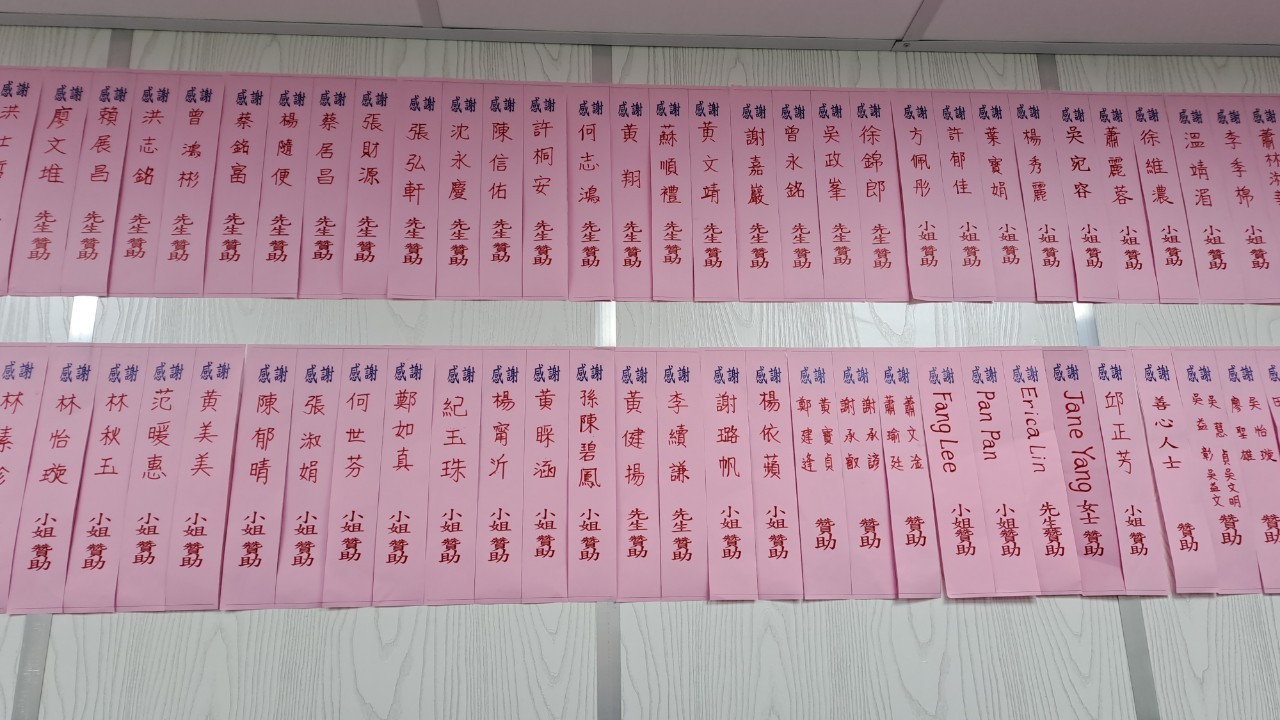 感謝 洪士
感謝 廖文堆 先生贊助
感謝 賴展昌 先生贊助
感謝 洪志銘 先生贊助
感謝 曾鴻彬 先生贊助
感謝 蔡銘富 先生贊助
感謝 楊隨便 先生贊助
感謝 蔡居昌 先生贊助
感謝 張財源 先生贊助
感謝 張弘軒 先生贊助
感謝 沈永慶 先生贊助
感謝 陳信佑 先生贊助
感謝 許桐安 先生贊助
感謝 何志鴻 先生贊助
感謝 黃翔 先生贊助
感謝 蘇順禮 先生贊助
感謝 黃文靖 先生贊助
感謝 謝嘉巖 先生贊助
感謝 曾永銘 先生贊助
感謝 吳政峯 先生贊助
感謝 徐錦郎 先生贊助
感謝 方佩彤 小姐贊助
感謝 許郁佳 小姐贊助
感謝 葉寶娟 小姐贊助
感謝 楊秀麗 小姐贊助
感謝 吳宛容 小姐贊助
感謝 蕭麗蓉 小姐贊助
感謝 徐維濃 小姐贊助
感謝 溫靖湄 小姐贊助
感謝 李季棉 小姐贊助
感謝 蕭林 小姐贊助
感謝 林素珍
感謝 林怡璇 小姐贊助
感謝 林秋五 小姐贊助
感謝 范暖惠 小姐贊助
感謝 黃美美 小姐贊助
感謝 陳郁晴 小姐贊助
感謝 張淑娟 小姐贊助
感謝 何世芬 小姐贊助
感謝 鄭如真 小姐贊助
感謝 紀玉珠 小姐贊助
感謝 楊甯沂 小姐贊助
感謝 黃睬涵 小姐贊助
感謝 孫陳碧鳳 小姐贊助
感謝 黃健揚 先生贊助
感謝 李續謙 先生贊助
感謝 謝璐帆 小姐贊助
感謝 楊依蘋 小姐贊助
感謝 黃寶貞 鄭建逢 贊助
感謝 謝承諺 謝承叡 贊助
感謝 蕭文淦 蕭瑜廷 贊助
感謝 Fang Lee 小姐贊助
感謝 Pan Pan 小姐贊助
感謝 Erica Lin 先生贊助
感謝 Jane Yang 女士贊助
感謝 邱正芳 小姐贊助
感謝 善心人士 贊助
感謝 吳慧貞 吳文明 吳益彰 吳益文 贊助
感謝 吳怡璇 廖聖雄 贊助